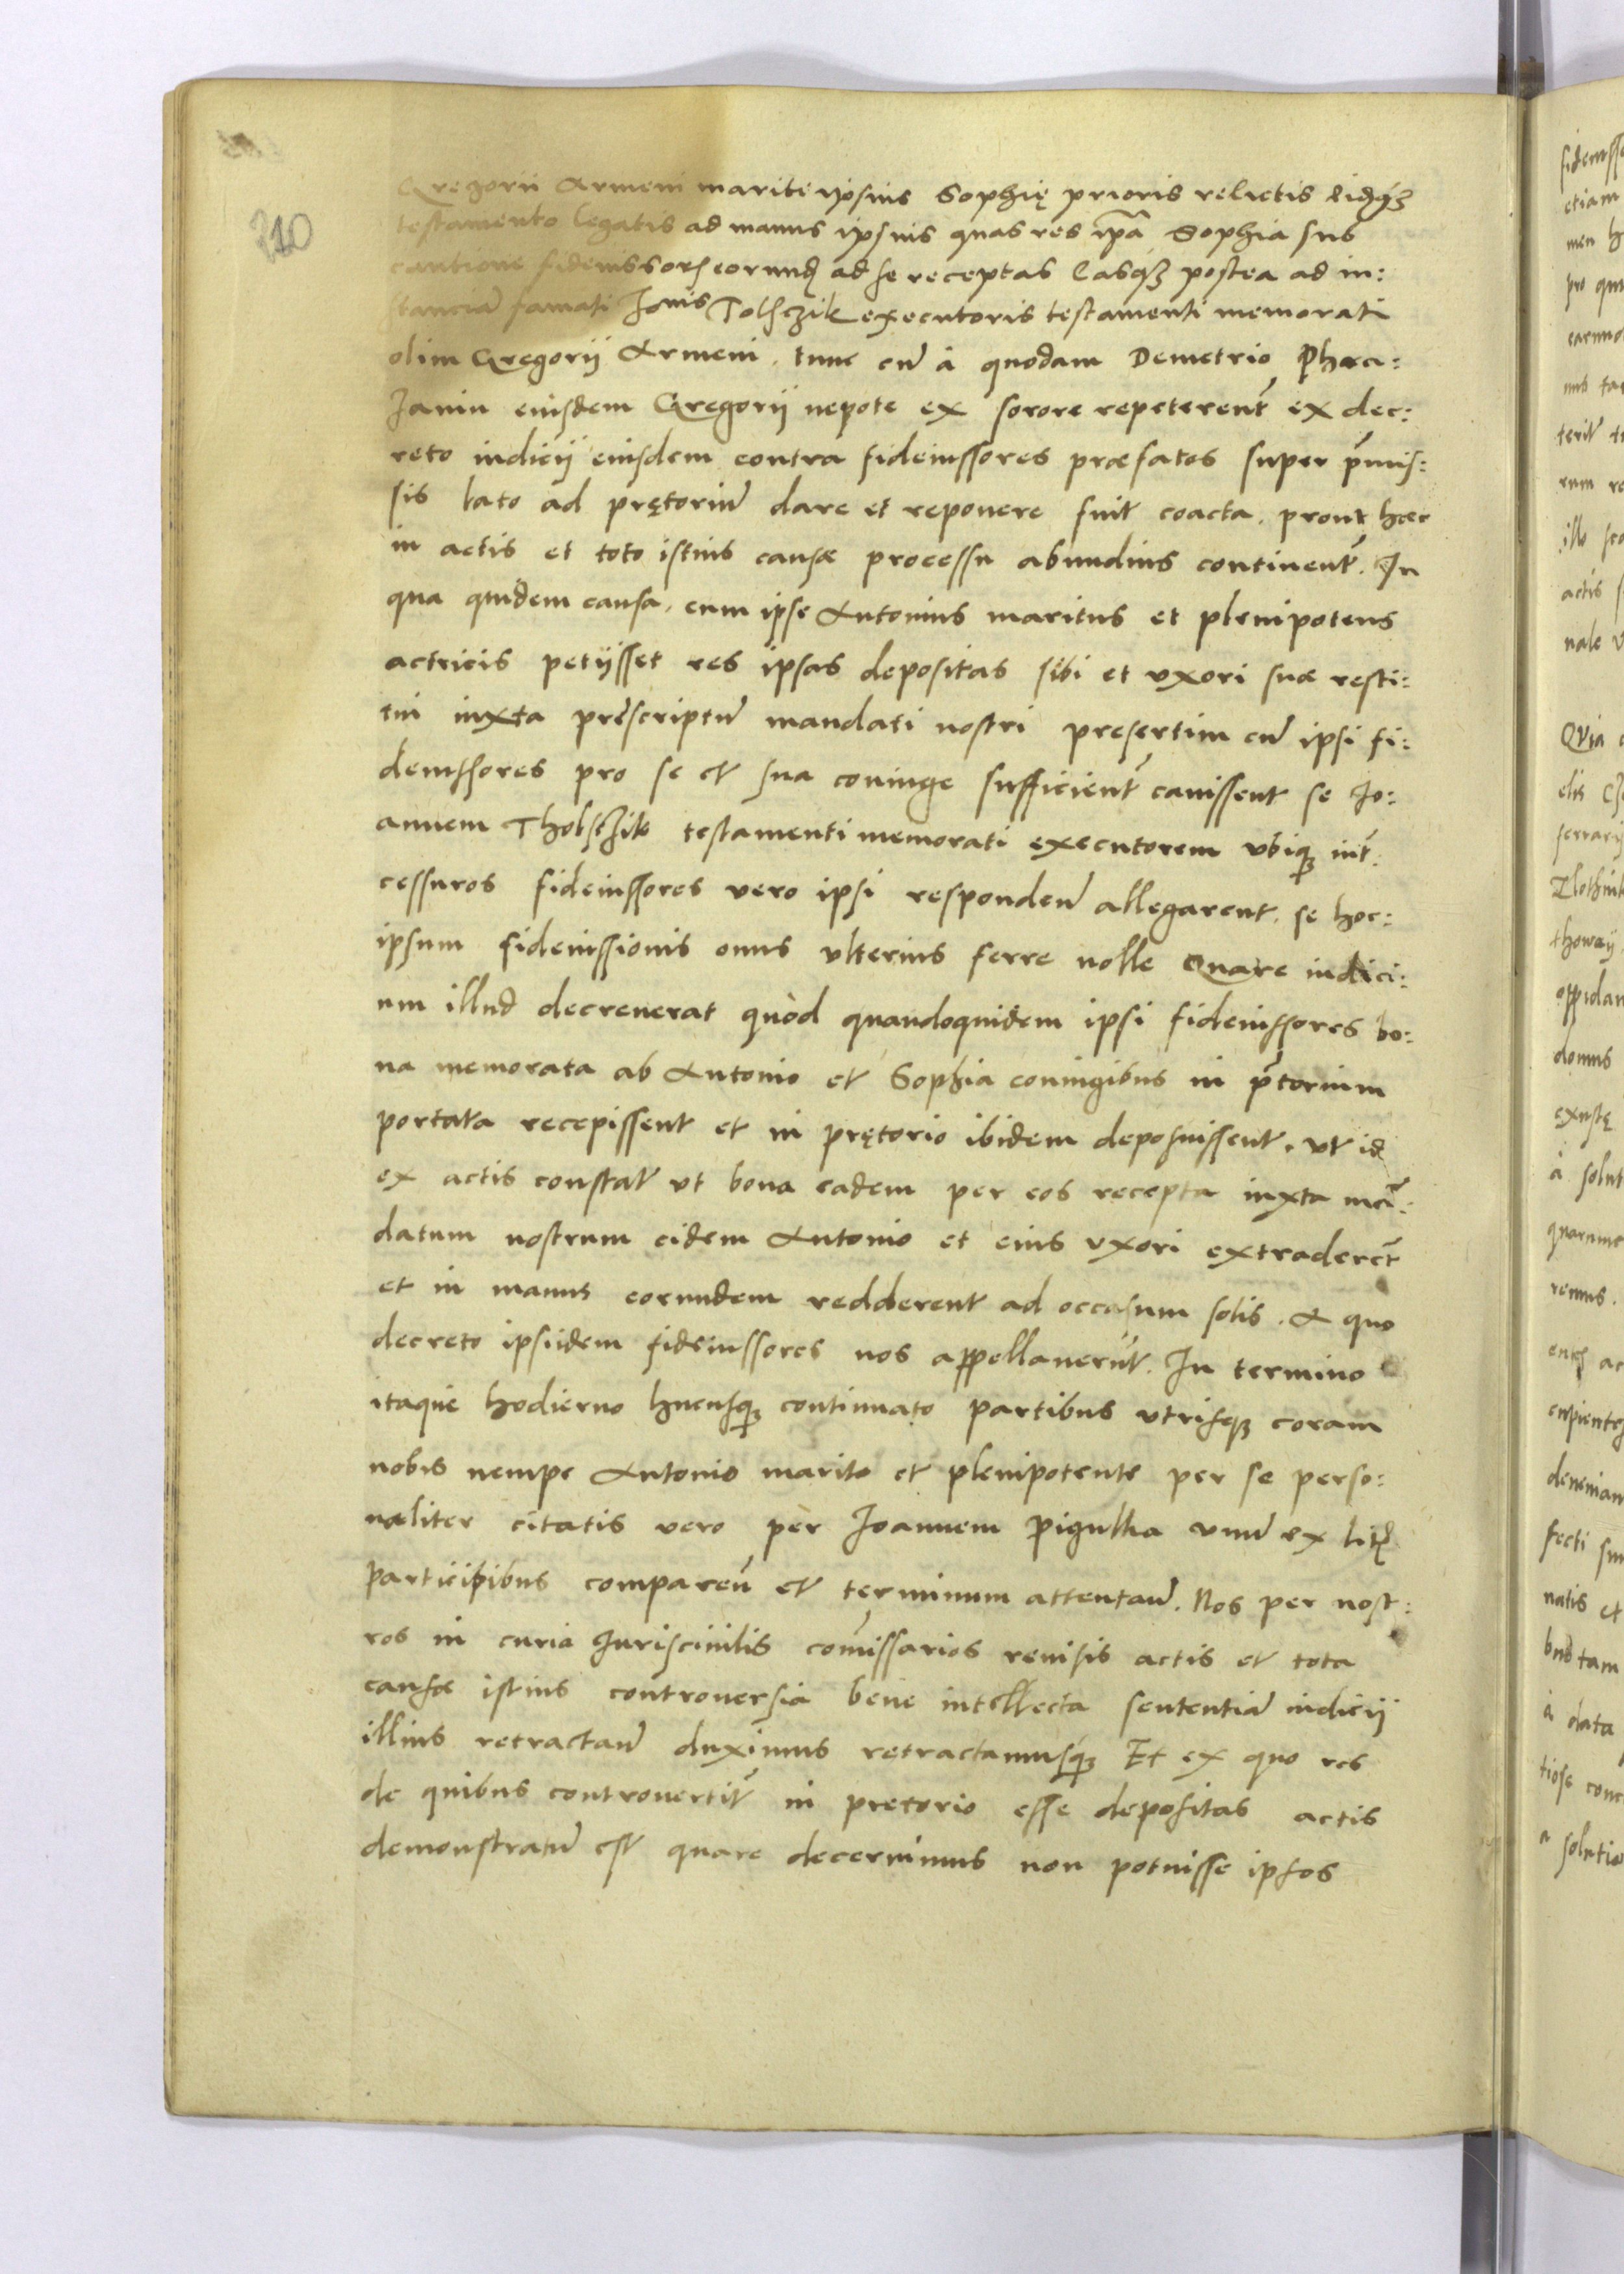 210
Gregorii Armeni mariti ipsius Sophię prioris relictis eidq́ꝫ
testamento legatis ad manus ipsius quas res ip̃a Sophia sub
cautione fideiussoꝝ eorund ad se receptas easqꝫ postea ad in:
stanciã famati Joĩs Tolsczik executoris testamenti memorati
olim Gregorij Armeni, tunc cũ à quodam Demetrio Phaca:
Janin eiusdem Gregorij nepote ex sorore repeterent̃ ex dec:
reto iudicij eiusdem contra fideiussores præfatos super p̃mis:
sis lato ad prętoriũ dare et reponere fuit coacta, prout hæc
in actis et toto istius causæ processu abundius continent̃. In
qua quidem causa, cum ipse Antonius maritus et plenipotens
actricis petijsset res ipsas depositas sibi et vxori suæ resti:
tui iuxta prescriptũ mandati nostri presertim cũ ipsi fi:
deiussores pro se et sua coniuge sufficient̃ cauissent se Jo:
annem Tholsczik testamenti memorati executorem vbiqꝫ int̃:
cessuros fideiussores vero ipsi respondeñ allegarent, se hoc:
ipsum fideiussionis onus vlterius ferre nolle Quare iudici:
um illud decreuerat quòd quandoquidem ipsi fideiussores bo:
na memorata ab Antonio et Sophia coniugibus in p̃torium
portata recepissent et in prętorio ibidem deposuissent, vt id
ex actis constat vt bona eadem per eos recepta iuxta mã:
datum nostrum eidem Antonio et eius vxori extraderẽt
et in manus eorundem redderent ad occasum solis. A quo
decreto ipsiidem fideiussores nos appellauerũt. In termino
itaque hodierno hucusqꝫ continuato partibus vtrisqꝫ coram
nobis nempe Antonio marito et plenipotente per se perso:
naliter citatis vero per Joannem Pigulka vnũ ex lit
participibus compareñ et terminum attentañ. Nos per nost:
ros in curia Juriscivilis com̃issarios reuisis actis et tota
causæ istius controuersia bene intellecta sententiã iudicij
illius retractañ duximus retractamusq́ꝫ Et ex quo res
de quibus controuertit̃ in pretorio esse depositas actis
demonstratũ est quare decernimus non potuisse ipsos